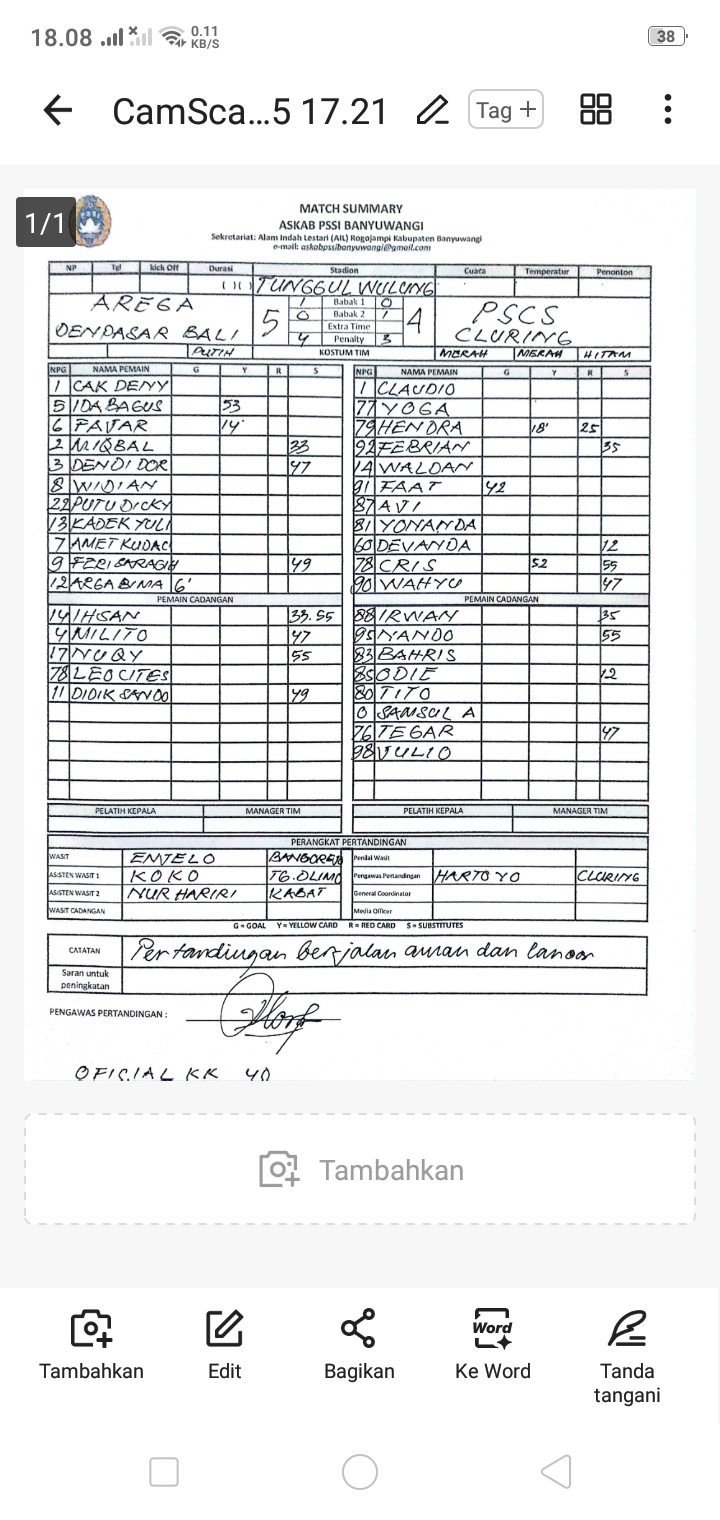 18.08 0.11 KB/S 38
CamSca...5 17.21 Tag +
1/1
MATCH SUMMARY
ASKAB PSSI BANYUWANGI
Sekretariat: Alam Indah Lestari (AIL) Rogojampi Kabupaten Banyuwangi
e-mail: askabpssibanyuwangi@gmail.com
NP Tgl kick Off Durasi Stadion Cuaca Temperatur Penonton
( ) ( ) TUNGGUL WULUNG
AREGA DENPASAR BALI 5 4 PSCS CLURING
1 Babak 1 0
0 Babak 2 1
Extra Time
4 Penalty 3
PUTIH KOSTUM TIM MERAH MERAH HITAM
NPG NAMA PEMAIN G Y R S NPG NAMA PEMAIN G Y R S
1 CAK DENY 1 CLAUDIO
5 IDA BAGUS 53 77 YOGA
6 FAJAR 14' 79 HENDRA 18' 25
2 M.IQBAL 33 92 FEBRIAN 35
3 DENDI DOR 47 14 WALDAN
8 WIDIAN 91 FAAT 42
22 PUTU DICKY 87 AVI
13 KADEK YULI 81 YONANDA
7 AMET KUDAC 60 DEVANDA 12
9 FERI SARAGIH 49 78 CRIS 52 55
12 ARGA BIMA 6' 90 WAHYU 47
PEMAIN CADANGAN PEMAIN CADANGAN
14 IHSAN 33.55 88 IRWAN 35
4 MILITO 47 95 NANDO 55
17 NUQY 55 83 BAHRIS
78 LEO CITES 85 ODIE 12
11 DIDIK SANDO 49 80 TITO
0 SAMSUL A
76 TEGAR 47
98 JULIO
PELATIH KEPALA MANAGER TIM PELATIH KEPALA MANAGER TIM
PERANGKAT PERTANDINGAN
WASIT ENJELO BANGOREJO Penilai Wasit
ASISTEN WASIT 1 KOKO TG.OLIMO Pengawas Pertandingan HARTOYO CLURING
ASISTEN WASIT 2 NUR HARIRI KABAT General Coordinator
WASIT CADANGAN Media Officer
G = GOAL Y = YELLOW CARD R = RED CARD S = SUBSTITUTES
CATATAN Pertandingan berjalan aman dan lancar
Saran untuk
peningkatan
PENGAWAS PERTANDINGAN :
OFICIAL KK 40
Tambahkan
Tambahkan Edit Bagikan Word Ke Word Tanda tangani